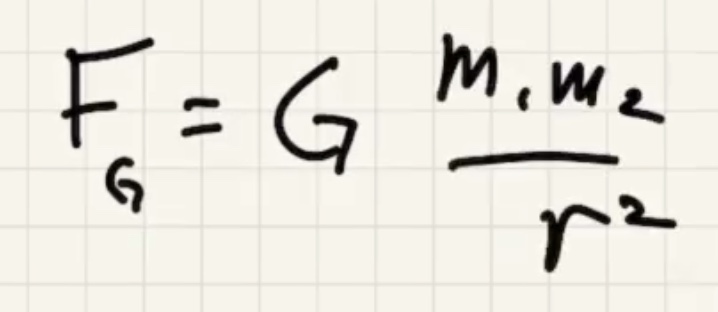 F_G = G \frac{m_1 m_2}{r^2}